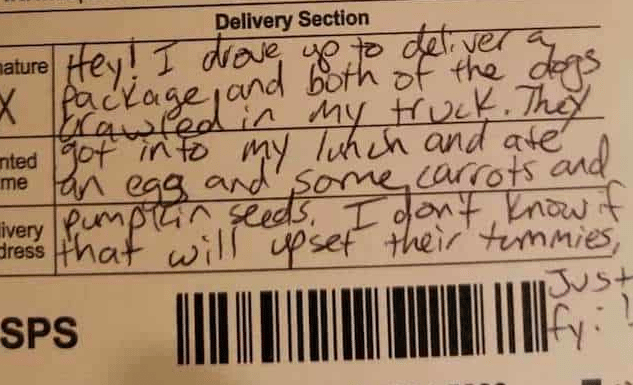 Delivery Section
nature
X
Hey! I drove up to deliver a
package, and both of the dogs
crawled in my truck. They
nted
me
got into my lunch and ate
an egg and some carrots and
ivery
dress
pumpkin seeds. I don't know if
that will upset their tummies,
Just
fyi!
SPS